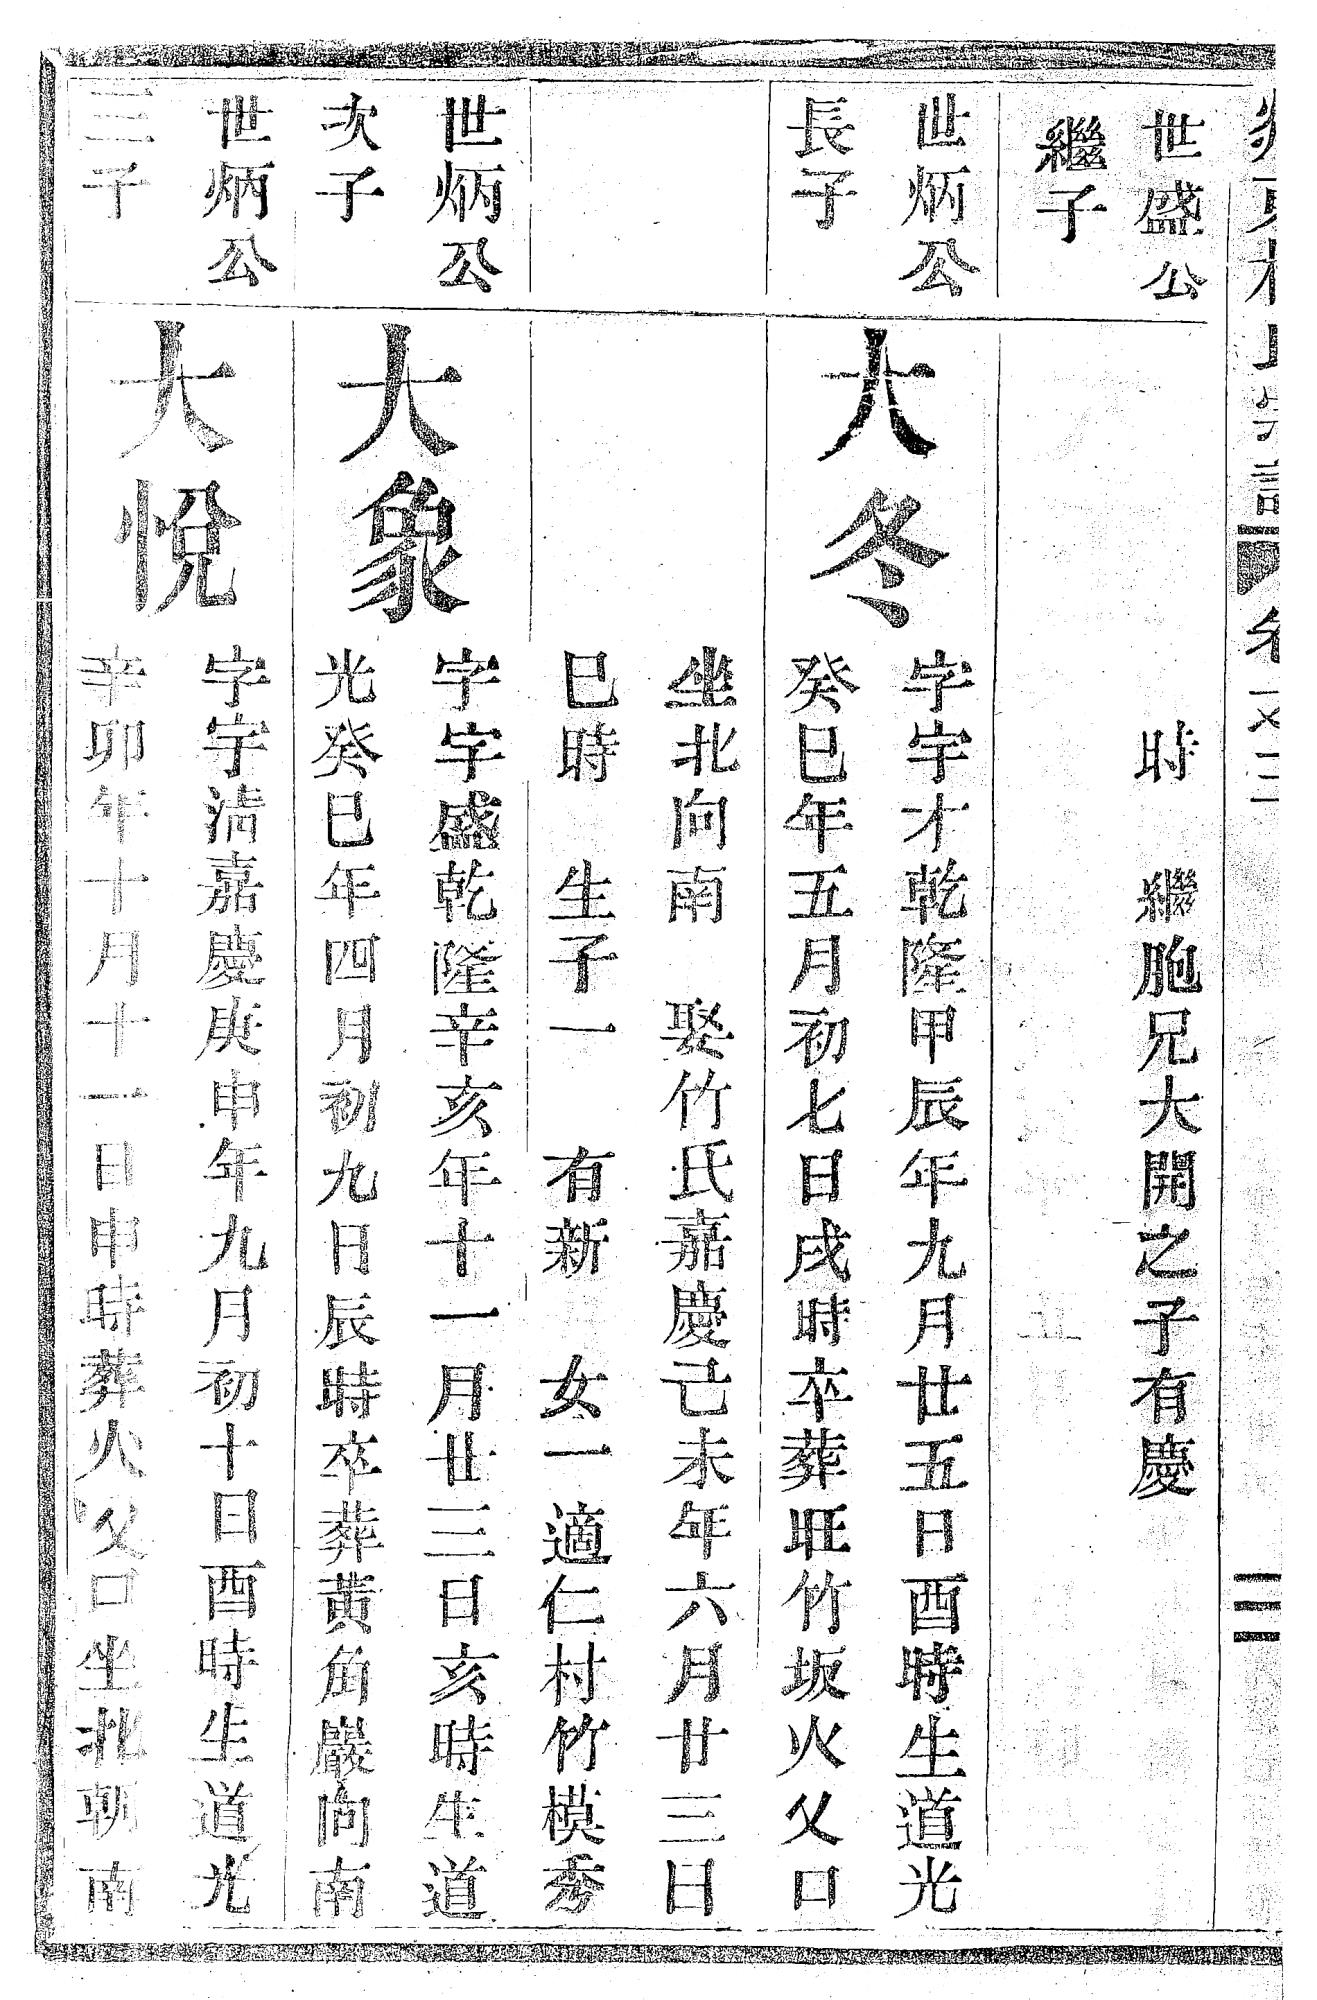 氏宗譜
卷
世盛公
時 繼胞兄大開之子有慶
繼子
世炳公
長子
大冬
字宇才乾隆甲辰年九月廿五日酉時生道光
癸巳年五月初七日戌時卒葬旺竹坂火父口
坐北向南 娶竹氏嘉慶己未年六月廿三日
巳時 生子一 有新 女一適仁村竹模秀
世炳公
次子
大象
字宇盛乾隆辛亥年十一月廿三日亥時生道
光癸巳年四月初九日辰時卒葬黃角巖向南
世炳公
三子
大悅
字宇清嘉慶庚申年九月初十日酉時生道光
辛卯年十月十一日申時葬火父口坐北朝南